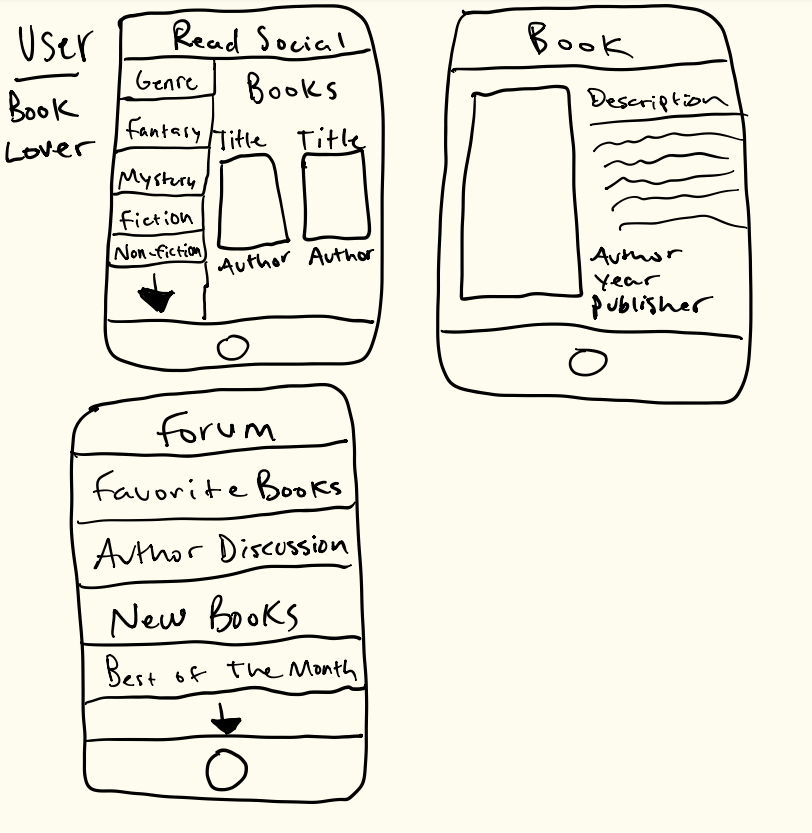 User
Book
Lover
Read Social
Genre
Fantasy
Mystery
Fiction
Non-fiction
Books
Title Title
Author Author
Book
Description
Author
Year
Publisher
Forum
Favorite Books
Author Discussion
New Books
Best of The Month